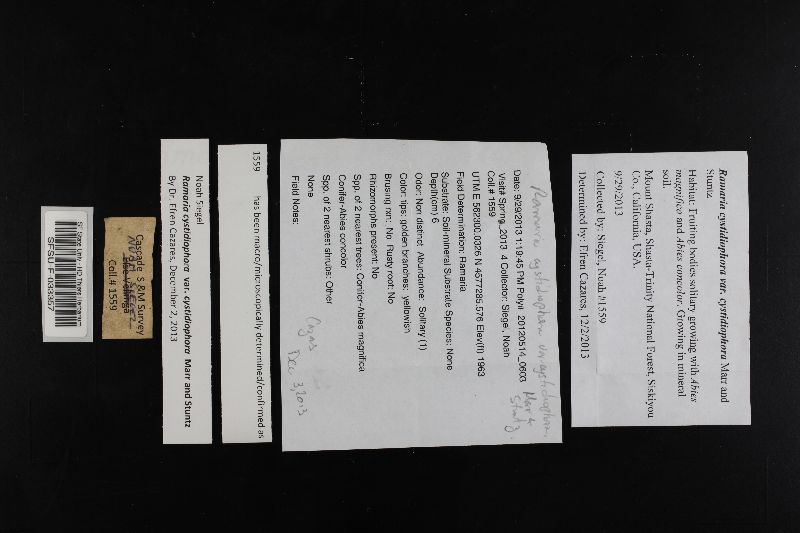 Ramaria cystidiophora var. cystidiophora Marr and
Stuntz
Habitat: Fruiting bodies solitary growing with Abies
magnifica and Abies concolor. Growing in mineral
soil.
Mount Shasta, Shasta-Trinity National Forest, Siskiyou
Co., California, USA.
9/29/2013
Collected by: Siegel, Noah #1559
Determined by: Efren Cazares, 12/2/2013
Ramaria cystidiophora var cystidiophora
Marr &
Stuntz.
Date: 9/29/2013 1:19:45 PM Poly#: 20120514_0603
Visit# Spring_2013_4 Collector: Siegel, Noah
Coll.# 1559
UTM E 562300.0326 N 4577285.576 Elev(ft) 1963
Field Determination: Ramaria
Substrate: Soil-mineral Substrate Species: None
Depth(cm) 6
Odor: Non distinct Abundance: Solitary (1)
Color: tips: golden branches: yellowish
Brusing rxn: No Rusty root: No
Rhizomorphs present: No
Spp. of 2 nearest trees: Conifer-Abies magnifica
Conifer-Abies concolor
Spp. of 2 nearest shrubs: Other
None
Field Notes:
Cazares
Dec 3, 2013
1559 has been macro/microscopically determined/confirmed as
Noah Siegel
Ramaria cystidiophora var. cystidiophora Marr and Stuntz
By Dr. Efren Cazares, December 2, 2013
Cascade S&M Survey
NOAH SIEGEL
Coll.# 1559
SFSU F 033357